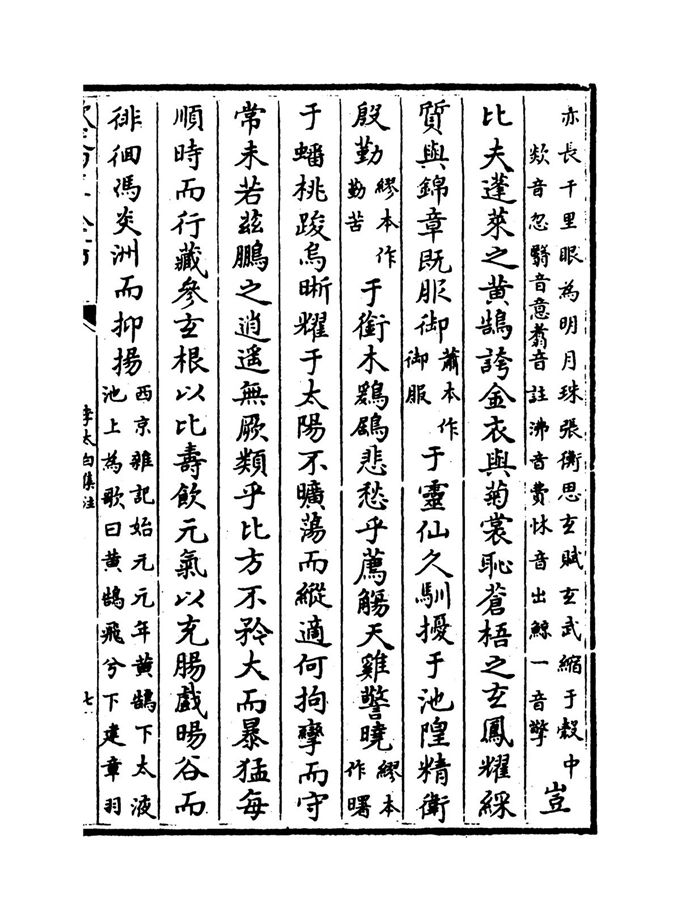 亦長千里眼為明月珠張衡思玄賦玄武縮于殼中
欻音忽翳音意翥音註沸音費怵音出鯨一音擎
豈
比夫蓬萊之黄鵠誇金衣與菊裳恥蒼梧之玄鳳耀綵
質與錦章既服御蕭本作御服于靈仙久馴擾于池隍精衛
殷勤繆本作勤苦于銜木鶢鶋悲愁乎薦觴天雞警曉繆本作曙
于蟠桃踆烏晰耀于太陽不曠蕩而縱適何拘攣而守
常未若兹鵬之逍遥無厥類乎比方不矜大而暴猛每
順時而行藏參玄根以比壽飲元氣以充腸戲暘谷而
徘徊馮炎洲而抑揚
西京雜記始元元年黄鵠下太液
池上為歌曰黄鵠飛兮下建章羽
李太白集注
七